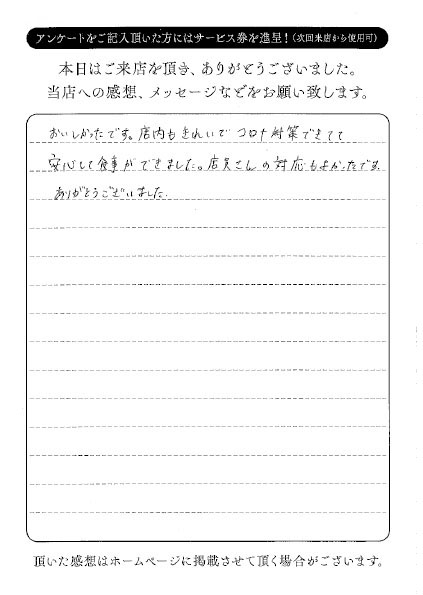 アンケートをご記入頂いた方にはサービス券を進呈！（次回来店から使用可）
本日はご来店を頂き、ありがとうございました。
当店への感想、メッセージなどをお願い致します。
おいしかったです。店内もきれいでコロナ対策できてて
安心して食事ができました。店員さんの対応もよかったです。
ありがとうございました.
頂いた感想はホームページに掲載させて頂く場合がございます。